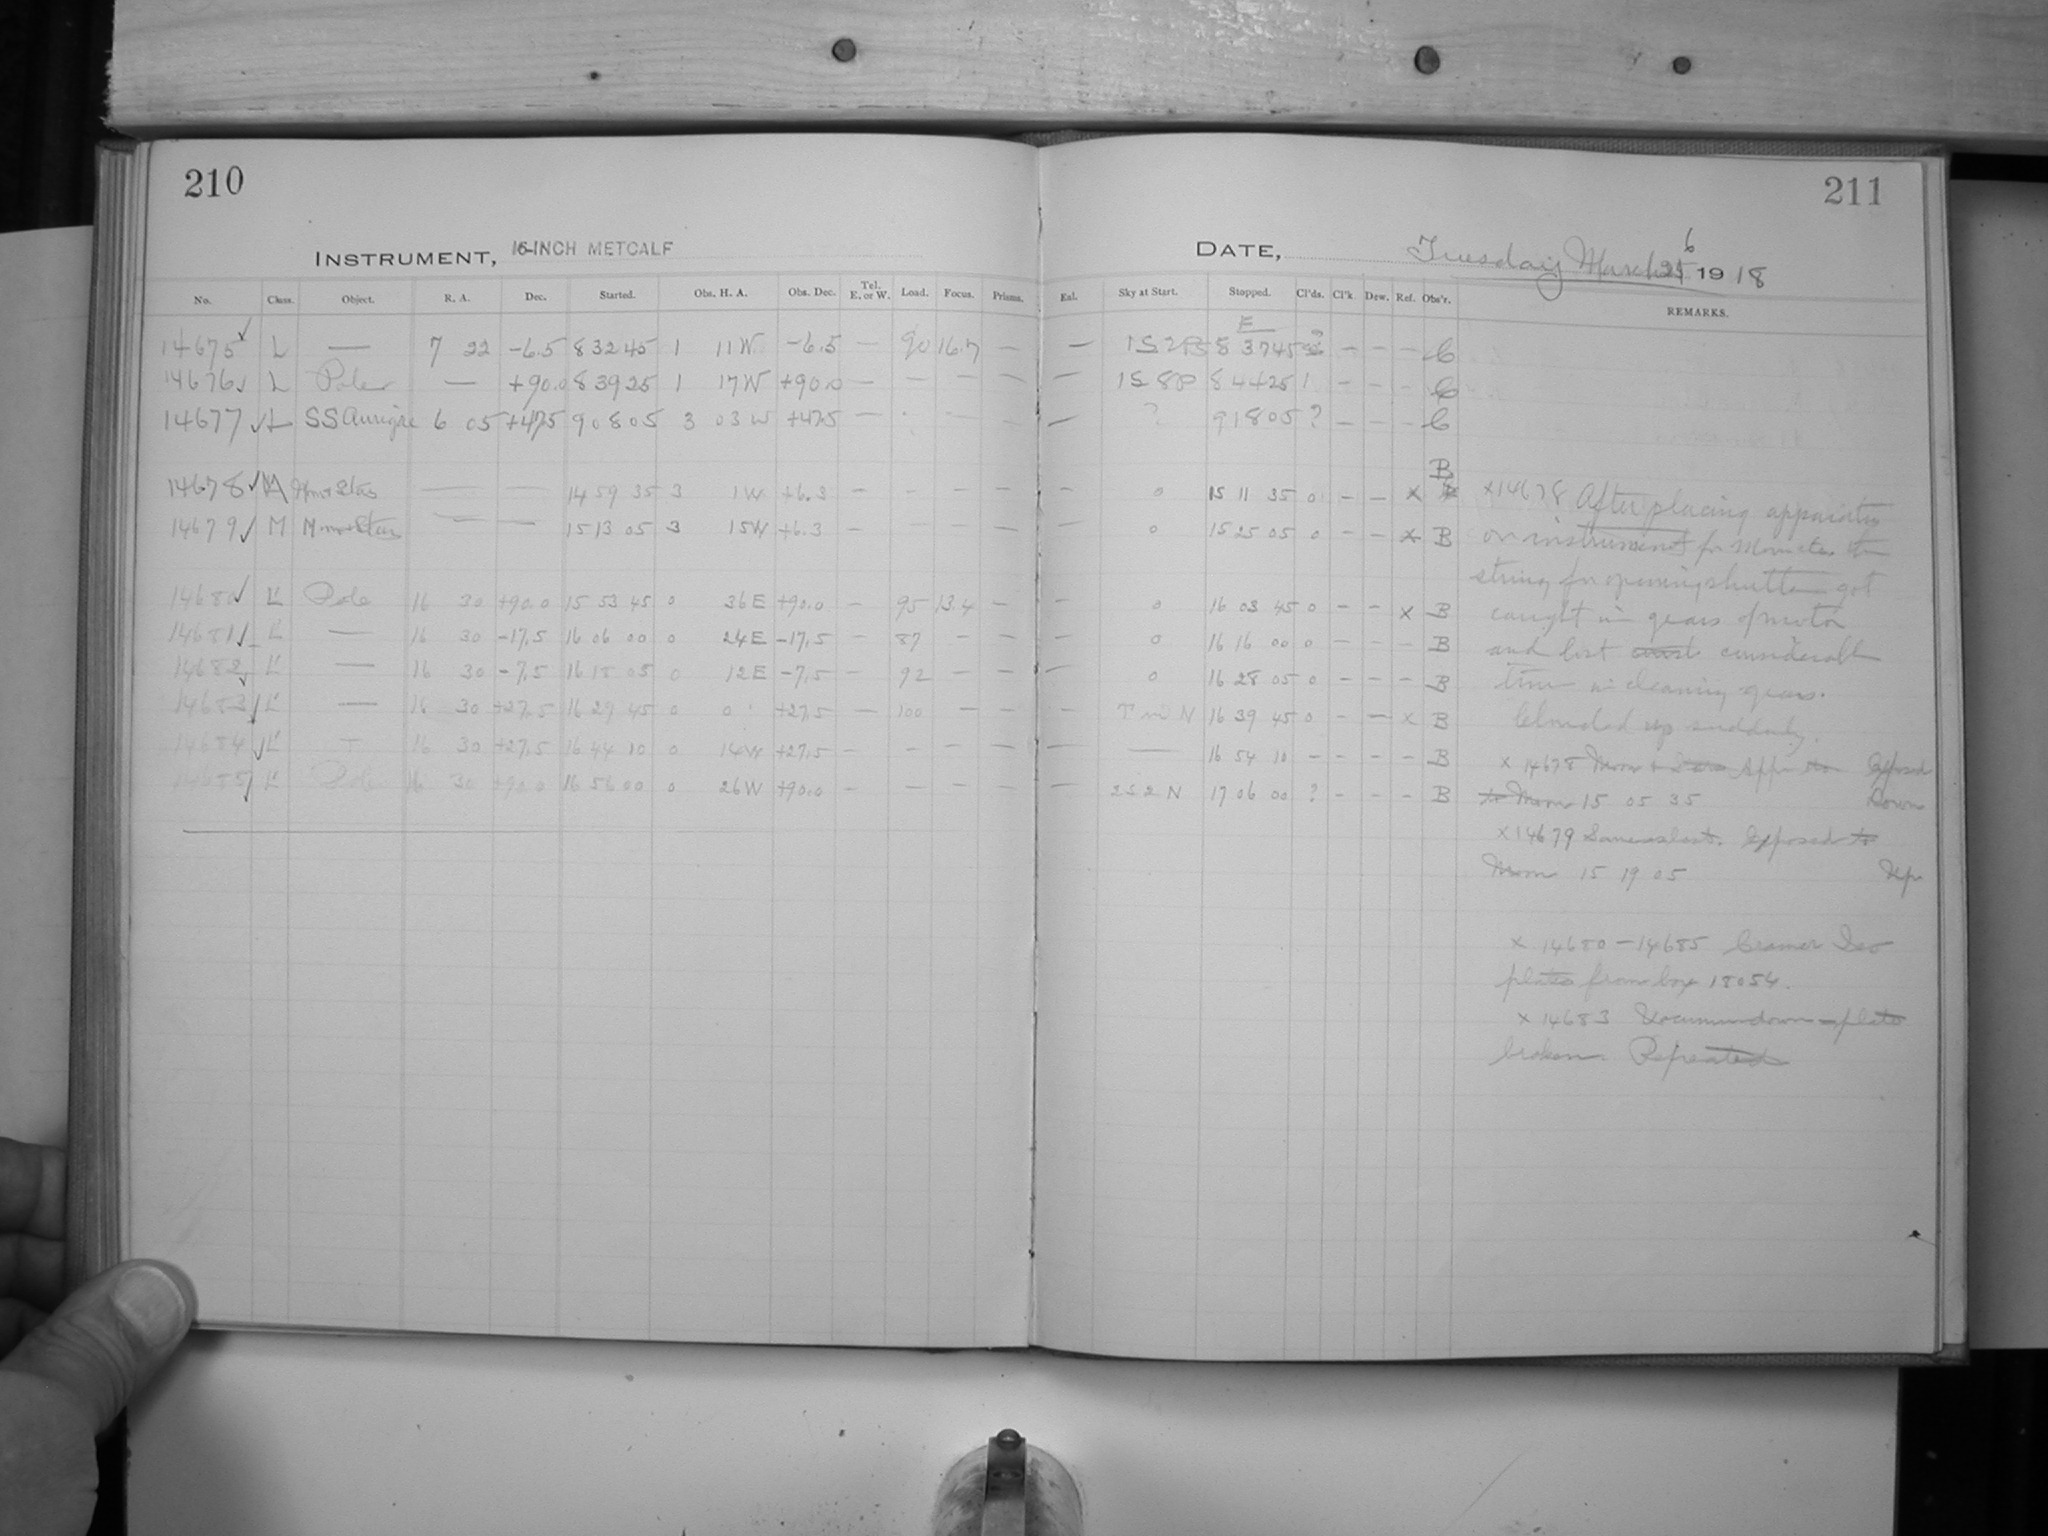 210
INSTRUMENT, 16-INCH METCALF
No. Class. Object. R. A. Dec. Started. Obs. H. A. Obs. Dec. Tel. E. or W. Load. Focus. Prisms.
14675 ✓ L — 7 22 -6.5 8 32 45 1 11 W -6.5 — 90 16.7 —
14676 ✓ L Pole — +90.0 8 39 25 1 17 W +90.0 — - — —
14677 ✓ L SS Aurigae 6 05 +47.5 9 08 05 3 03 W +47.5 — — —
14678 ✓ M Moon + Stars — — 14 59 35 3 1 W +6.3 — - — —
14679 ✓ M Moon + Stars — — 15 13 05 3 15 W +6.3 — — — —
14680 ✓ L Pole 16 30 +90.0 15 53 45 0 36 E +90.0 — 95 13.4 —
14681 ✓ L — 16 30 -17.5 16 06 00 0 24 E -17.5 — 87 - —
14682 ✓ L — 16 30 -7.5 16 18 05 0 12 E -7.5 — 92 — —
14683 ✓ L — 16 30 +27.5 16 29 45 0 0 +27.5 — 100 — —
14684 ✓ L — 16 30 +27.5 16 44 10 0 14 W +27.5 — - — —
14685 ✓ L Pole 16 30 +90.0 16 56 00 0 26 W +90.0 — — — —
211
DATE, Tuesday March 26 1918
Eal. Sky at Start. Stopped. Cl'ds. Cl'k. Dew. Ref. Obs'r. REMARKS.
E
— 1S 2P 8 37 45 — — - C
— 1S 8P 8 44 25 1 - - - C
— ? 9 18 05 ? — — - C
B
— 0 15 11 35 0 — — x
— 0 15 25 05 0 — — x B
— 0 16 03 45 0 — — x B
— 0 16 16 00 0 — — — B
— 0 16 28 05 0 — — — B
— N 16 39 45 0 — — x B
— — 16 54 10 - - - - B
— 2S 2 N 17 06 00 ? - - - B
x 14678 After placing apparatus
on instrument for Moon + stars the
string for opening shutter got
caught in gears of motor
and lost considerable
time in cleaning gears.
Clouded up suddenly.
x 14678 Moon + Stars Exposed
to Moon 15 05 35 Down
x 14679 Same as last. Exposed to
Moon 15 19 05 Up
x 14680 - 14685 Cramer Iso
plates from box 18054.
x 14683 Vacuum down - plate
broken. Repeated